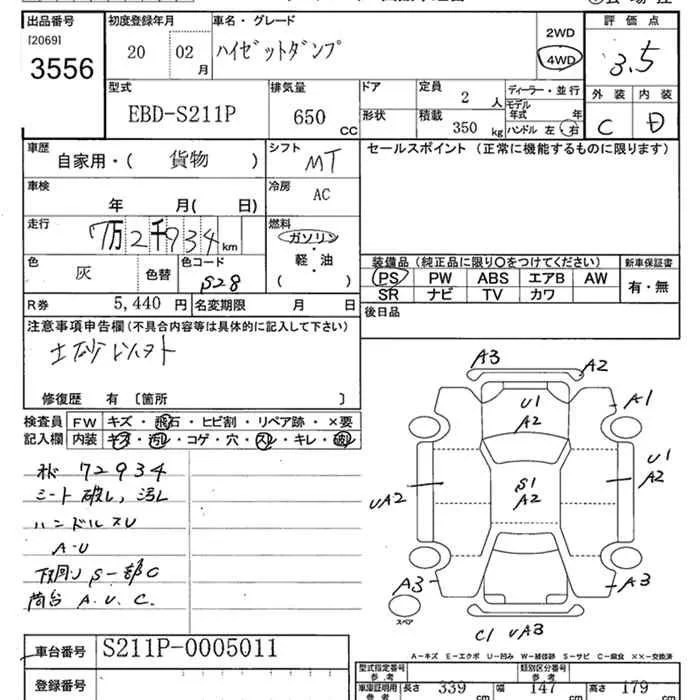 出品番号 初度登録年月 車名・グレード 評価点
[2069]
3556 20 02月 ハイゼットダンプ 2WD 4WD 3.5
型式 排気量 ドア 定員 ディーラー・並行 外装 内装
EBD-S211P 650 CC 形状 2人 モデル年式 年
積載 350 kg ハンドル 左・右 C D
車歴 シフト セールスポイント (正常に機能するものに限ります)
自家用・( 貨物 ) MT
車検 冷房
年 月( 日) AC
走行 燃料
7万2千934km ガソリン・軽・油
色 色替 色コード 装備品 (純正品に限り○をつけてください) 新車保証書
灰 S28 ( ) PS PW ABS エアB AW 有・無
R券 5,440円 名変期限 月 日 SR ナビ TV カワ
注意事項申告欄(不具合内容等は具体的に記入して下さい) 後日品
修復歴 有 〔箇所 〕
検査員 FW キズ・飛石・ヒビ割・リペア跡・×要
記入欄 内装 キズ・汚レ・コゲ・穴・スレ・キレ・破レ
72934
シート破レ,汚レ
ハンドルスレ
A-U
下回りS一部C
荷台 A.U.C.
A3 A2
U1 A2 A1
U1 A2
UA2 S1 A2
A3 A3
スペア
C1 UA3
A－キズ E－エクボ U－凹み W－補修跡 S－サビ C－腐食 ××－交換済
車台番号 S211P-0005011
登録番号
型式指定番号 参考 類別区分番号 参考
車庫証明用 参考 長さ 339cm 幅 147cm 高さ 179cm